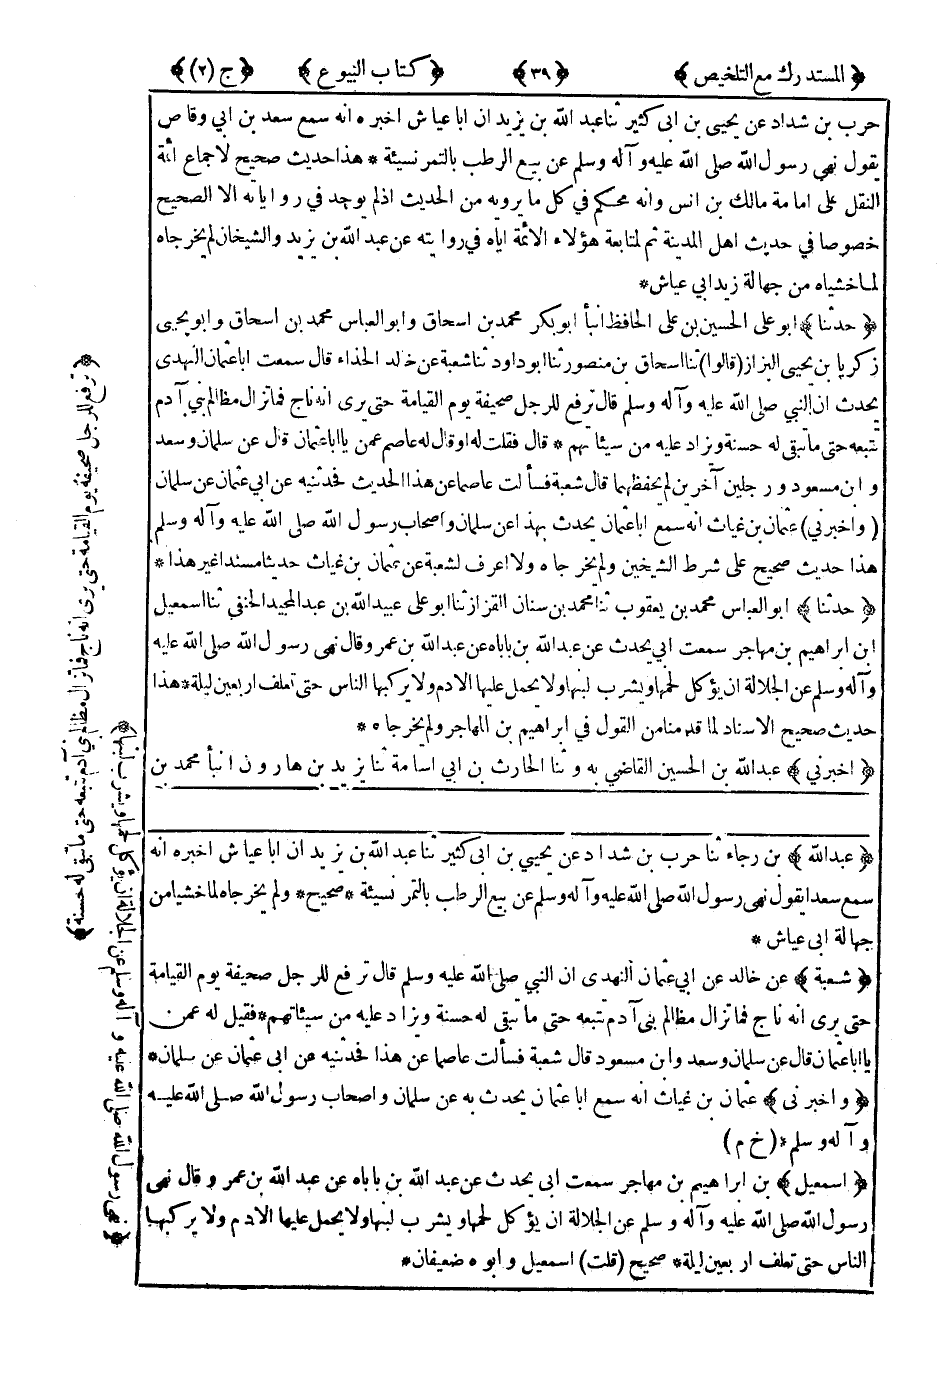 ﴿ المستدرك مع التلخيص ﴾ ﴿ ٣٩ ﴾ ﴿ كتاب البيوع ﴾ ﴿ ج (٢) ﴾
حرب بن شداد عن يحيى بن ابى كثير ثنا عبد الله بن يزيد ان ابا عياش اخبره انه سمع سعد بن ابي وقاص
يقول نهى رسول الله صلى الله عليه و آله وسلم عن بيع الرطب بالتمر نسيئة * هذا حديث صحيح لاجماع ائمة
النقل على امامة مالك بن انس وانه محكم في كل ما يرويه من الحديث اذ لم يوجد في رواياته الا الصحيح
خصوصا في حديث اهل المدينة ثم لمتابعة هؤلاء الائمة اياه في روايته عن عبد الله بن يزيد والشيخان لم يخرجاه
لما خشياه من جهالة زيد ابي عياش *
﴿ حدثنا ﴾ ابو على الحسين بن على الحافظ انبأ ابو بكر محمد بن اسحاق وابو العباس محمد بن اسحاق وابو يحيى
زكريا بن يحيى البزاز (قالوا) ثنا اسحاق بن منصور ثنا ابو داود ثنا شعبة عن خالد الحذاء قال سمعت ابا عثمان النهدى
يحدث ان النبي صلى الله عليه وآله وسلم قال ترفع للرجل صحيفة يوم القيامة حتى يرى انه ناج فما تزال مظالم بني آدم
تتبعه حتى ما تبقى له حسنة ويزاد عليه من سيئاتهم * قال فقلت له او قال له عاصم عمن يا ابا عثمان قال عن سلمان وسعد
و ابن مسعود و رجلين آخرين لم يحفظهما قال شعبة فسألت عاصما عن هذا الحديث فحدثنيه عن ابي عثمان عن سلمان
( واخبرني ) عثمان بن غياث انه سمع ابا عثمان يحدث بهذا عن سلمان واصحاب رسول الله صلى الله عليه وآله وسلم
هذا حديث صحيح على شرط الشيخين ولم يخرجاه ولا اعرف لشعبة عن عثمان بن غياث حديثا مسندا غير هذا *
﴿ حدثنا ﴾ ابو العباس محمد بن يعقوب ثنا محمد بن سنان القزاز ثنا ابو على عبيد الله بن عبد المجيد الحنفي ثنا اسمعيل
ابن ابراهيم بن مهاجر سمعت ابي يحدث عن عبد الله بن باباه عن عبد الله بن عمر و قال نهى رسول الله صلى الله عليه
وآله وسلم عن الجلالة ان يؤكل لحمها ويشرب لبنها ولا يحمل عليها الادم ولا يركبها الناس حتى تعلف اربعين ليلة * هذا
حديث صحيح الاسناد لما قدمنا من القول في ابراهيم بن المهاجر ولم يخرجاه *
﴿ اخبرني ﴾ عبد الله بن الحسين القاضي به و ثنا الحارث بن ابي اسامة ثنا يزيد بن هارون انبأ محمد بن
﴿ عبد الله ﴾ بن رجاء ثنا حرب بن شداد عن يحيى بن ابى كثير ثنا عبد الله بن يزيد ان ابا عياش اخبره انه
سمع سعدا يقول نهى رسول الله صلى الله عليه وآله وسلم عن بيع الرطب بالتمر نسيئة * صحيح * ولم يخرجاه لما خشيا من
جهالة ابى عياش *
﴿ شعبة ﴾ عن خالد عن ابي عثمان النهدى ان النبي صلى الله عليه وسلم قال ترفع للرجل صحيفة يوم القيامة
حتى يرى انه ناج فما تزال مظالم بنى آدم تتبعه حتى ما تبقى له حسنة ويزاد عليه من سيئاتهم * فقيل له عمن
يا ابا عثمان قال عن سلمان وسعد وابن مسعود قال شعبة فسألت عاصما عن هذا فحدثنيه عن ابى عثمان عن سلمان *
﴿ واخبرنى ﴾ عثمان بن غياث انه سمع ابا عثمان يحدث به عن سلمان واصحاب رسول الله صلى الله عليه
و آله وسلم * ( خ م )
﴿ اسمعيل ﴾ بن ابراهيم بن مهاجر سمعت ابى يحدث عن عبد الله بن باباه عن عبد الله بن عمر و قال نهى
رسول الله صلى الله عليه وآله وسلم عن الجلالة ان يؤكل لحمها ويشرب لبنها ولا يحمل عليها الادم ولا يركبها
الناس حتى تعلف اربعين ليلة * صحيح (قلت) اسمعيل وابوه ضعيفان *
﴿ ترفع للرجل صحيفة يوم القيامة حتى يرى انه ناج فما تزال مظالم بني آدم تتبعه حتى ما تبقى له حسنة ﴾
﴿ نهى رسول الله صلى الله عليه و آله وسلم عن الجلالة ان يؤكل لحمها ويشرب لبنها ﴾